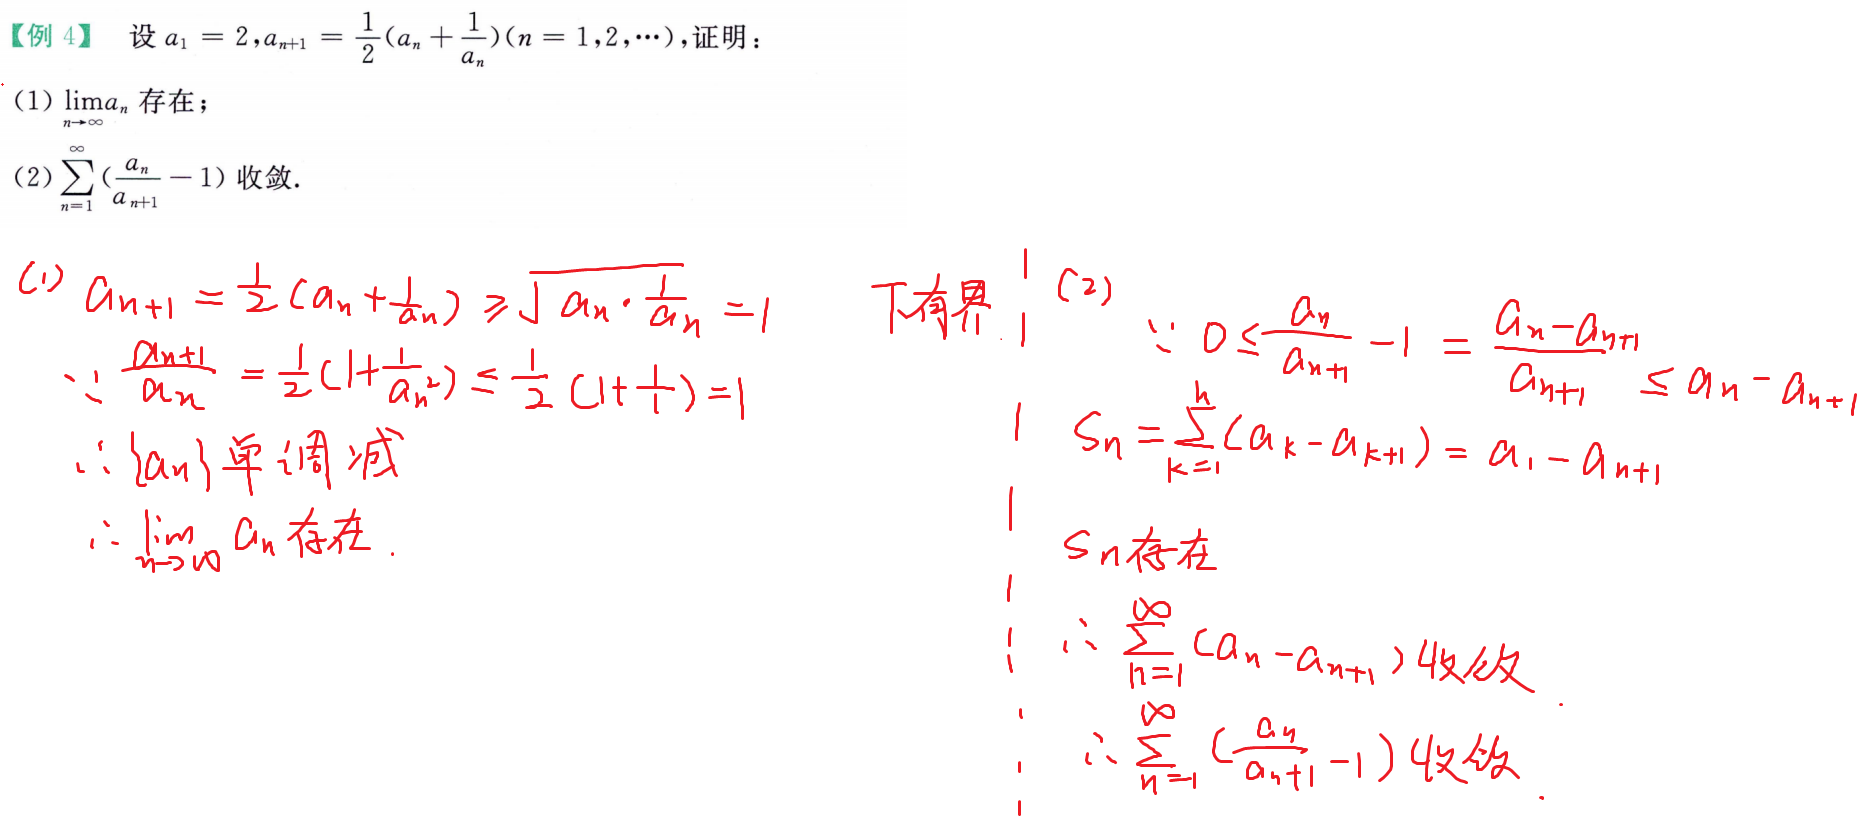 【例 4】 设 a₁ = 2, aₙ₊₁ = 1/2(aₙ + 1/aₙ)(n = 1,2,⋯),证明:
(1) lim_{n→∞} aₙ 存在;
(2) ∑_{n=1}^{∞} (aₙ/aₙ₊₁ − 1) 收敛.
(1) aₙ₊₁ = 1/2(aₙ + 1/aₙ) ≥ √(aₙ · 1/aₙ) = 1 下有界.
∵ aₙ₊₁/aₙ = 1/2(1 + 1/aₙ²) ≤ 1/2(1 + 1/1) = 1
∴ {aₙ} 单调减
∴ lim_{n→∞} aₙ 存在.
(2)
∵ 0 ≤ aₙ/aₙ₊₁ − 1 = (aₙ − aₙ₊₁)/aₙ₊₁ ≤ aₙ − aₙ₊₁
Sₙ = ∑_{k=1}^{n} (aₖ − aₖ₊₁) = a₁ − aₙ₊₁
Sₙ 存在
∴ ∑_{n=1}^{∞} (aₙ − aₙ₊₁) 收敛.
∴ ∑_{n=1}^{∞} (aₙ/aₙ₊₁ − 1) 收敛.